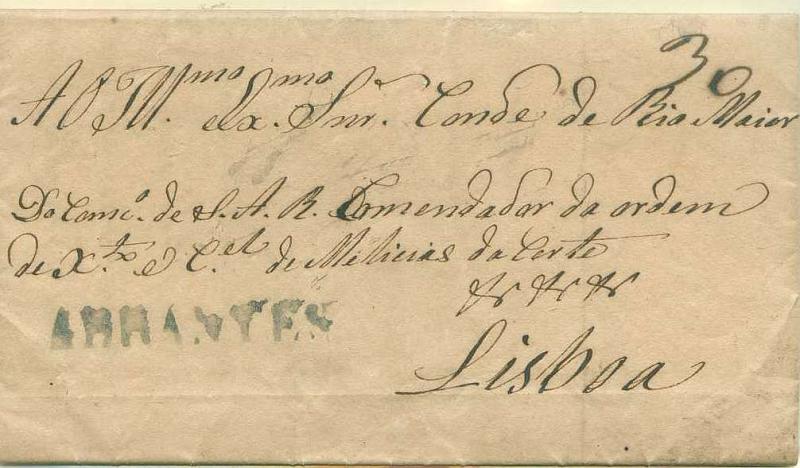 30
Ao Ill.mo Ex.mo Snr. Conde de Rio Maior
Do Conc.o de S. A. R. Comendador da ordem
de X.to e C.el de Milicias da Corte
&& && &&
ABRANTES
Lisboa